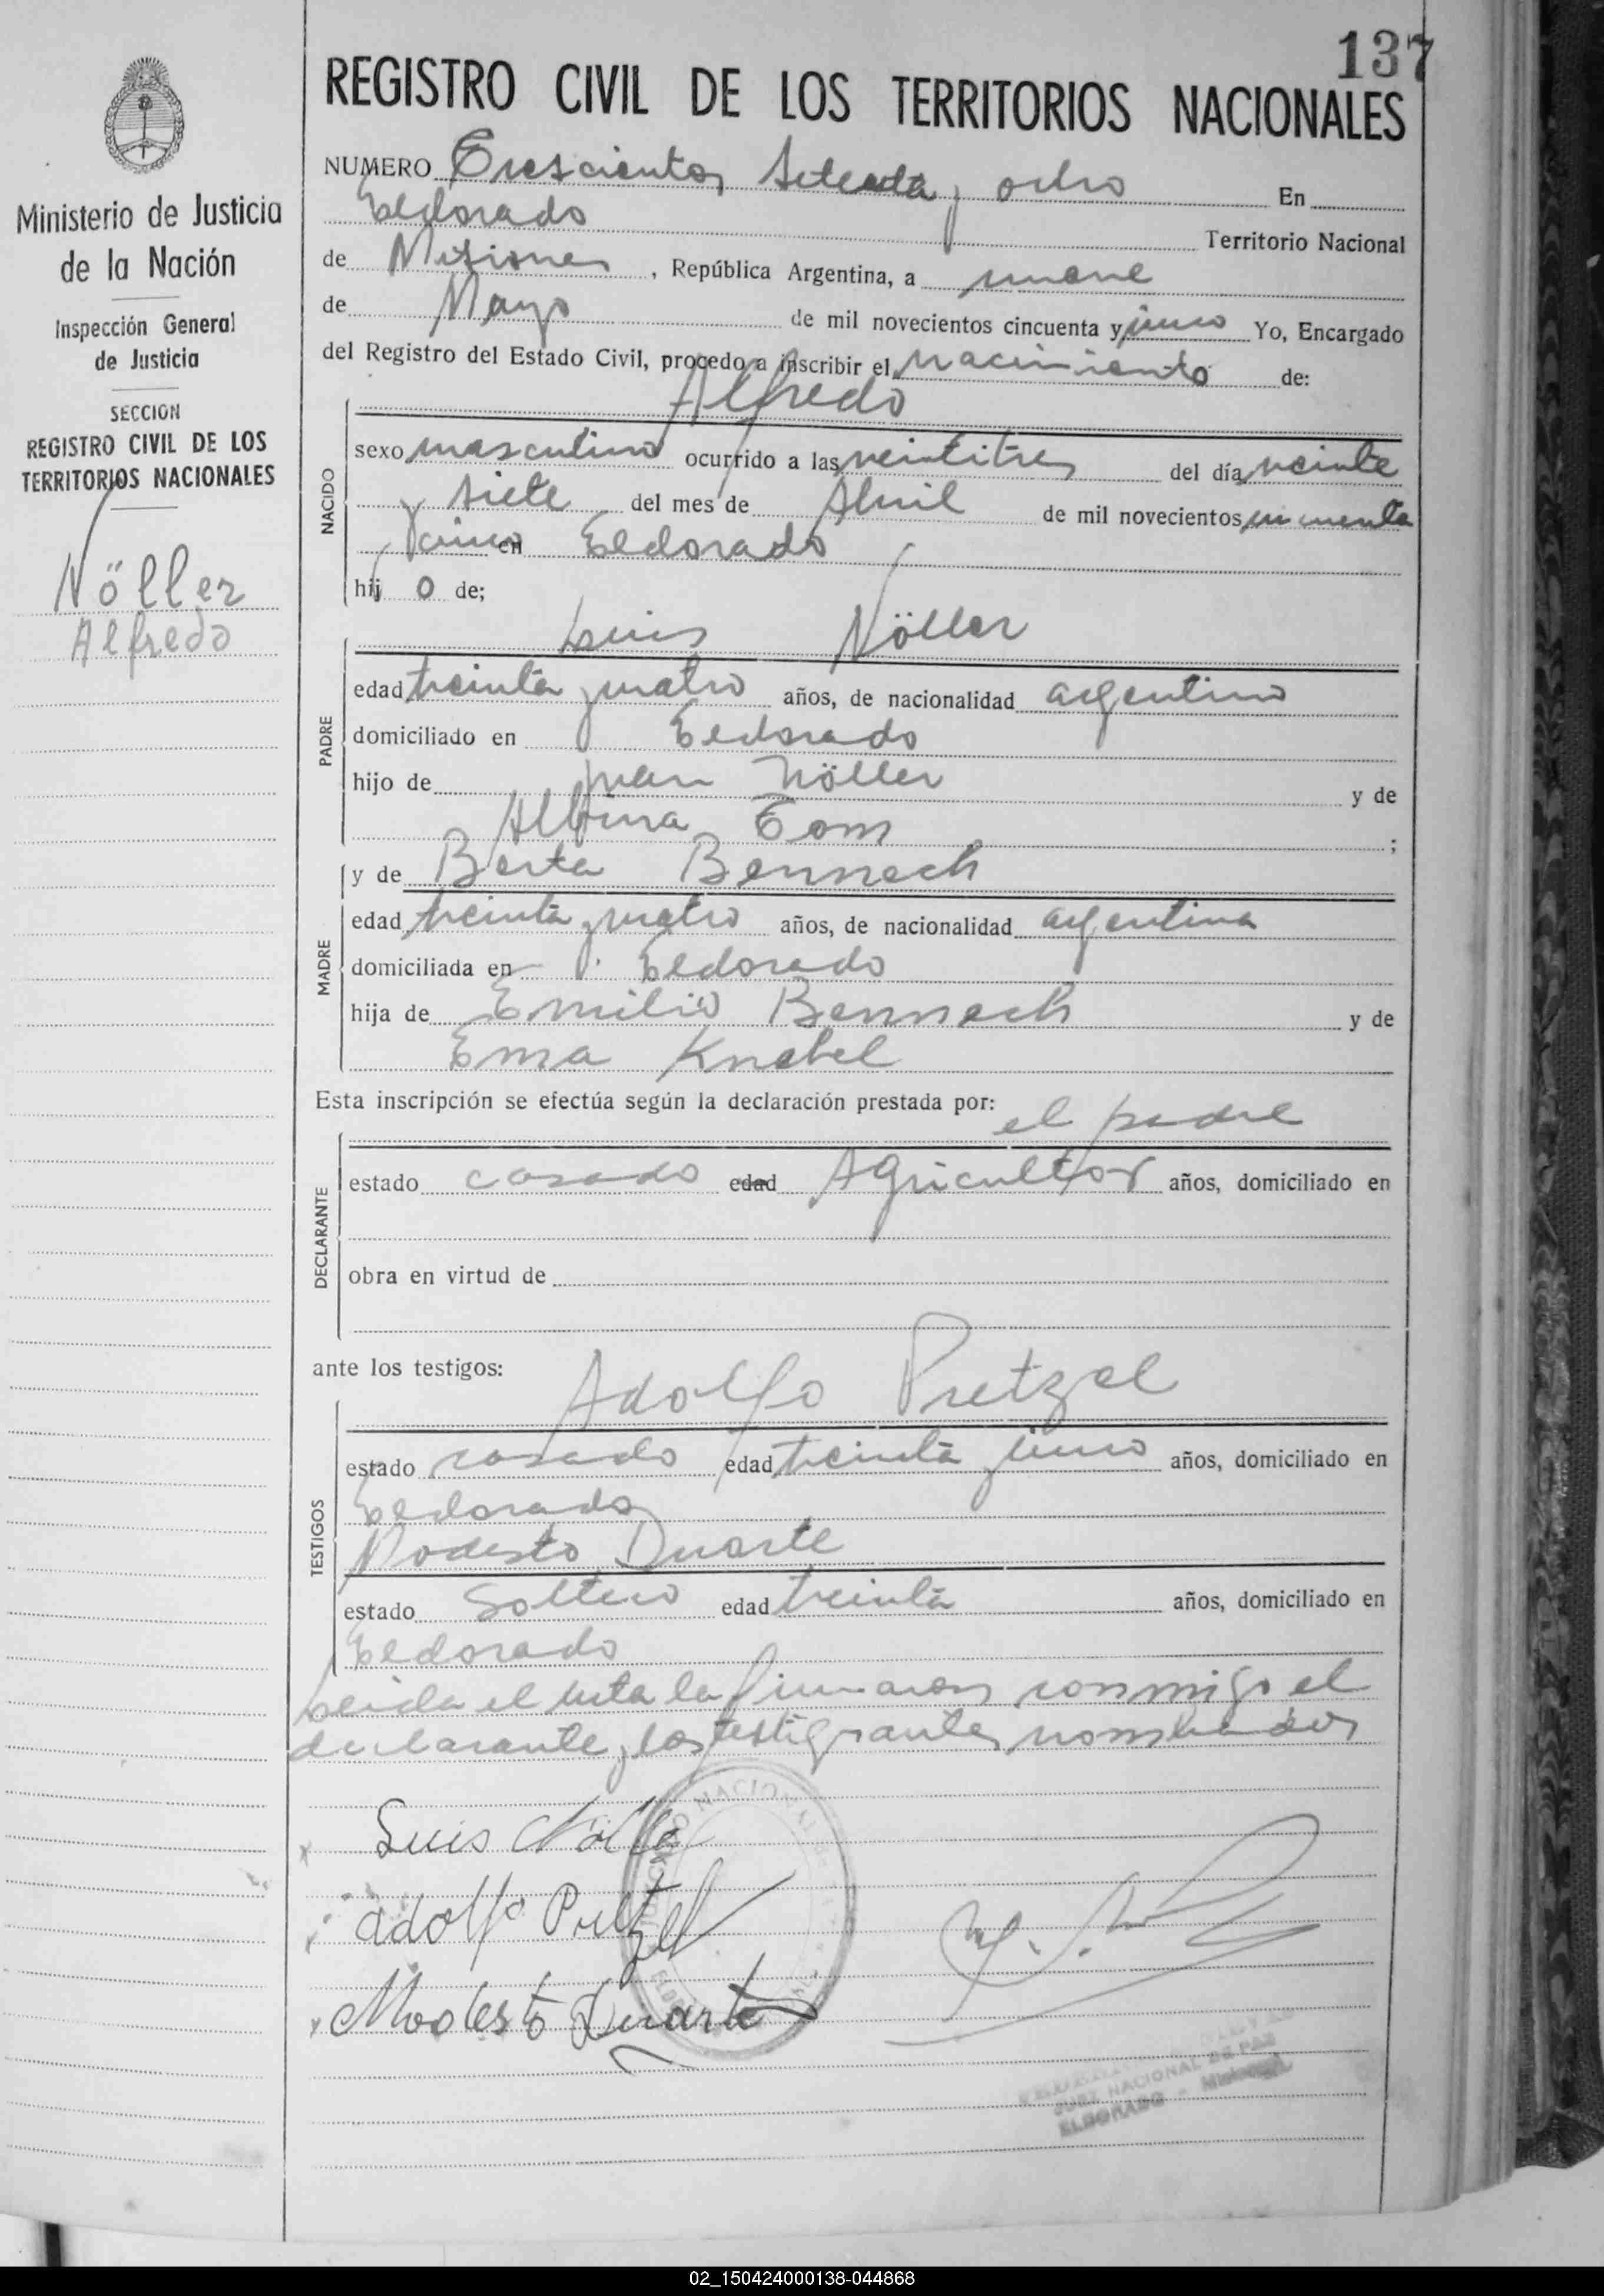 137
REGISTRO CIVIL DE LOS TERRITORIOS NACIONALES
Ministerio de Justicia
de la Nación
Inspección General
de Justicia
SECCION
REGISTRO CIVIL DE LOS
TERRITORIOS NACIONALES
Nöller
Alfredo
NUMERO Trescientos setenta y ocho En
Eldorado Territorio Nacional
de Misiones, República Argentina, a nueve
de Mayo de mil novecientos cincuenta y cinco Yo, Encargado
del Registro del Estado Civil, procedo a inscribir el nacimiento de:
Alfredo
NACIDO
sexo masculino ocurrido a las veintitres del día veinte
y siete del mes de Abril de mil novecientos cincuenta
y cinco en Eldorado
hij o de;
Luis Nöller
PADRE
edad treinta y cuatro años, de nacionalidad argentino
domiciliado en Eldorado
hijo de Juan Nöller y de
Albina Tom ;
y de Berta Bennech
MADRE
edad treinta y cuatro años, de nacionalidad argentina
domiciliada en Eldorado
hija de Emilio Bennech y de
Ema Knebel
Esta inscripción se efectúa según la declaración prestada por: el padre
DECLARANTE
estado casado edad Agricultor años, domiciliado en
obra en virtud de
ante los testigos: Adolfo Pretzel
TESTIGOS
estado casado edad treinta y cinco años, domiciliado en
Eldorado
Modesto Duarte
estado Soltero edad treinta años, domiciliado en
Eldorado
Leida el acta la firmaron conmigo el
declarante y los testigos antes nombrados
Luis Nöller
Adolfo Pretzel
Modesto Duarte
JUEZ NACIONAL DE PAZ
ELDORADO - Misiones
02_150424000138-044868